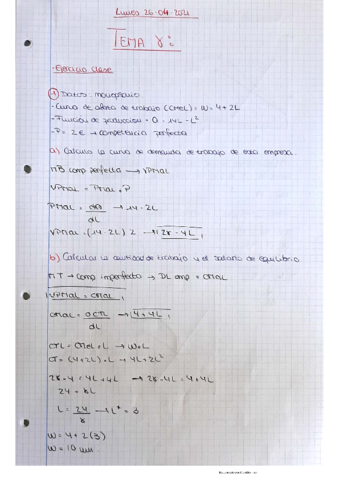 Lunes 26-04-2021
TEMA 8:
- Ejercicio clase
① Datos: monopsonio
- Curva de oferta de trabajo (CMeL) = W = 4 + 2L
- Función de producción = Q = 14L - L²
- P = 2€ → competencia perfecta
a) Calcula la curva de demanda de trabajo de esta empresa.
MB comp perfecta → VPMaL
VPMaL = PMaL · P
PMaL = dQ/dL → 14 - 2L
VPMaL = (14 - 2L) 2 → 28 - 4L
b) Calcular la cantidad de trabajo y el salario de equilibrio
MT → Comp imperfecta → DL emp = CMaL
VPMaL = CMaL
CMaL = dCTL/dL → 4 + 4L
CTL = CMeL · L → W · L
CT = (4 + 2L) · L → 4L + 2L²
28 - 4 = 4L + 4L → 28 - 4L = 4 + 4L
24 = 8L
L = 24/8 → L* = 3
W = 4 + 2(3)
W = 10 um